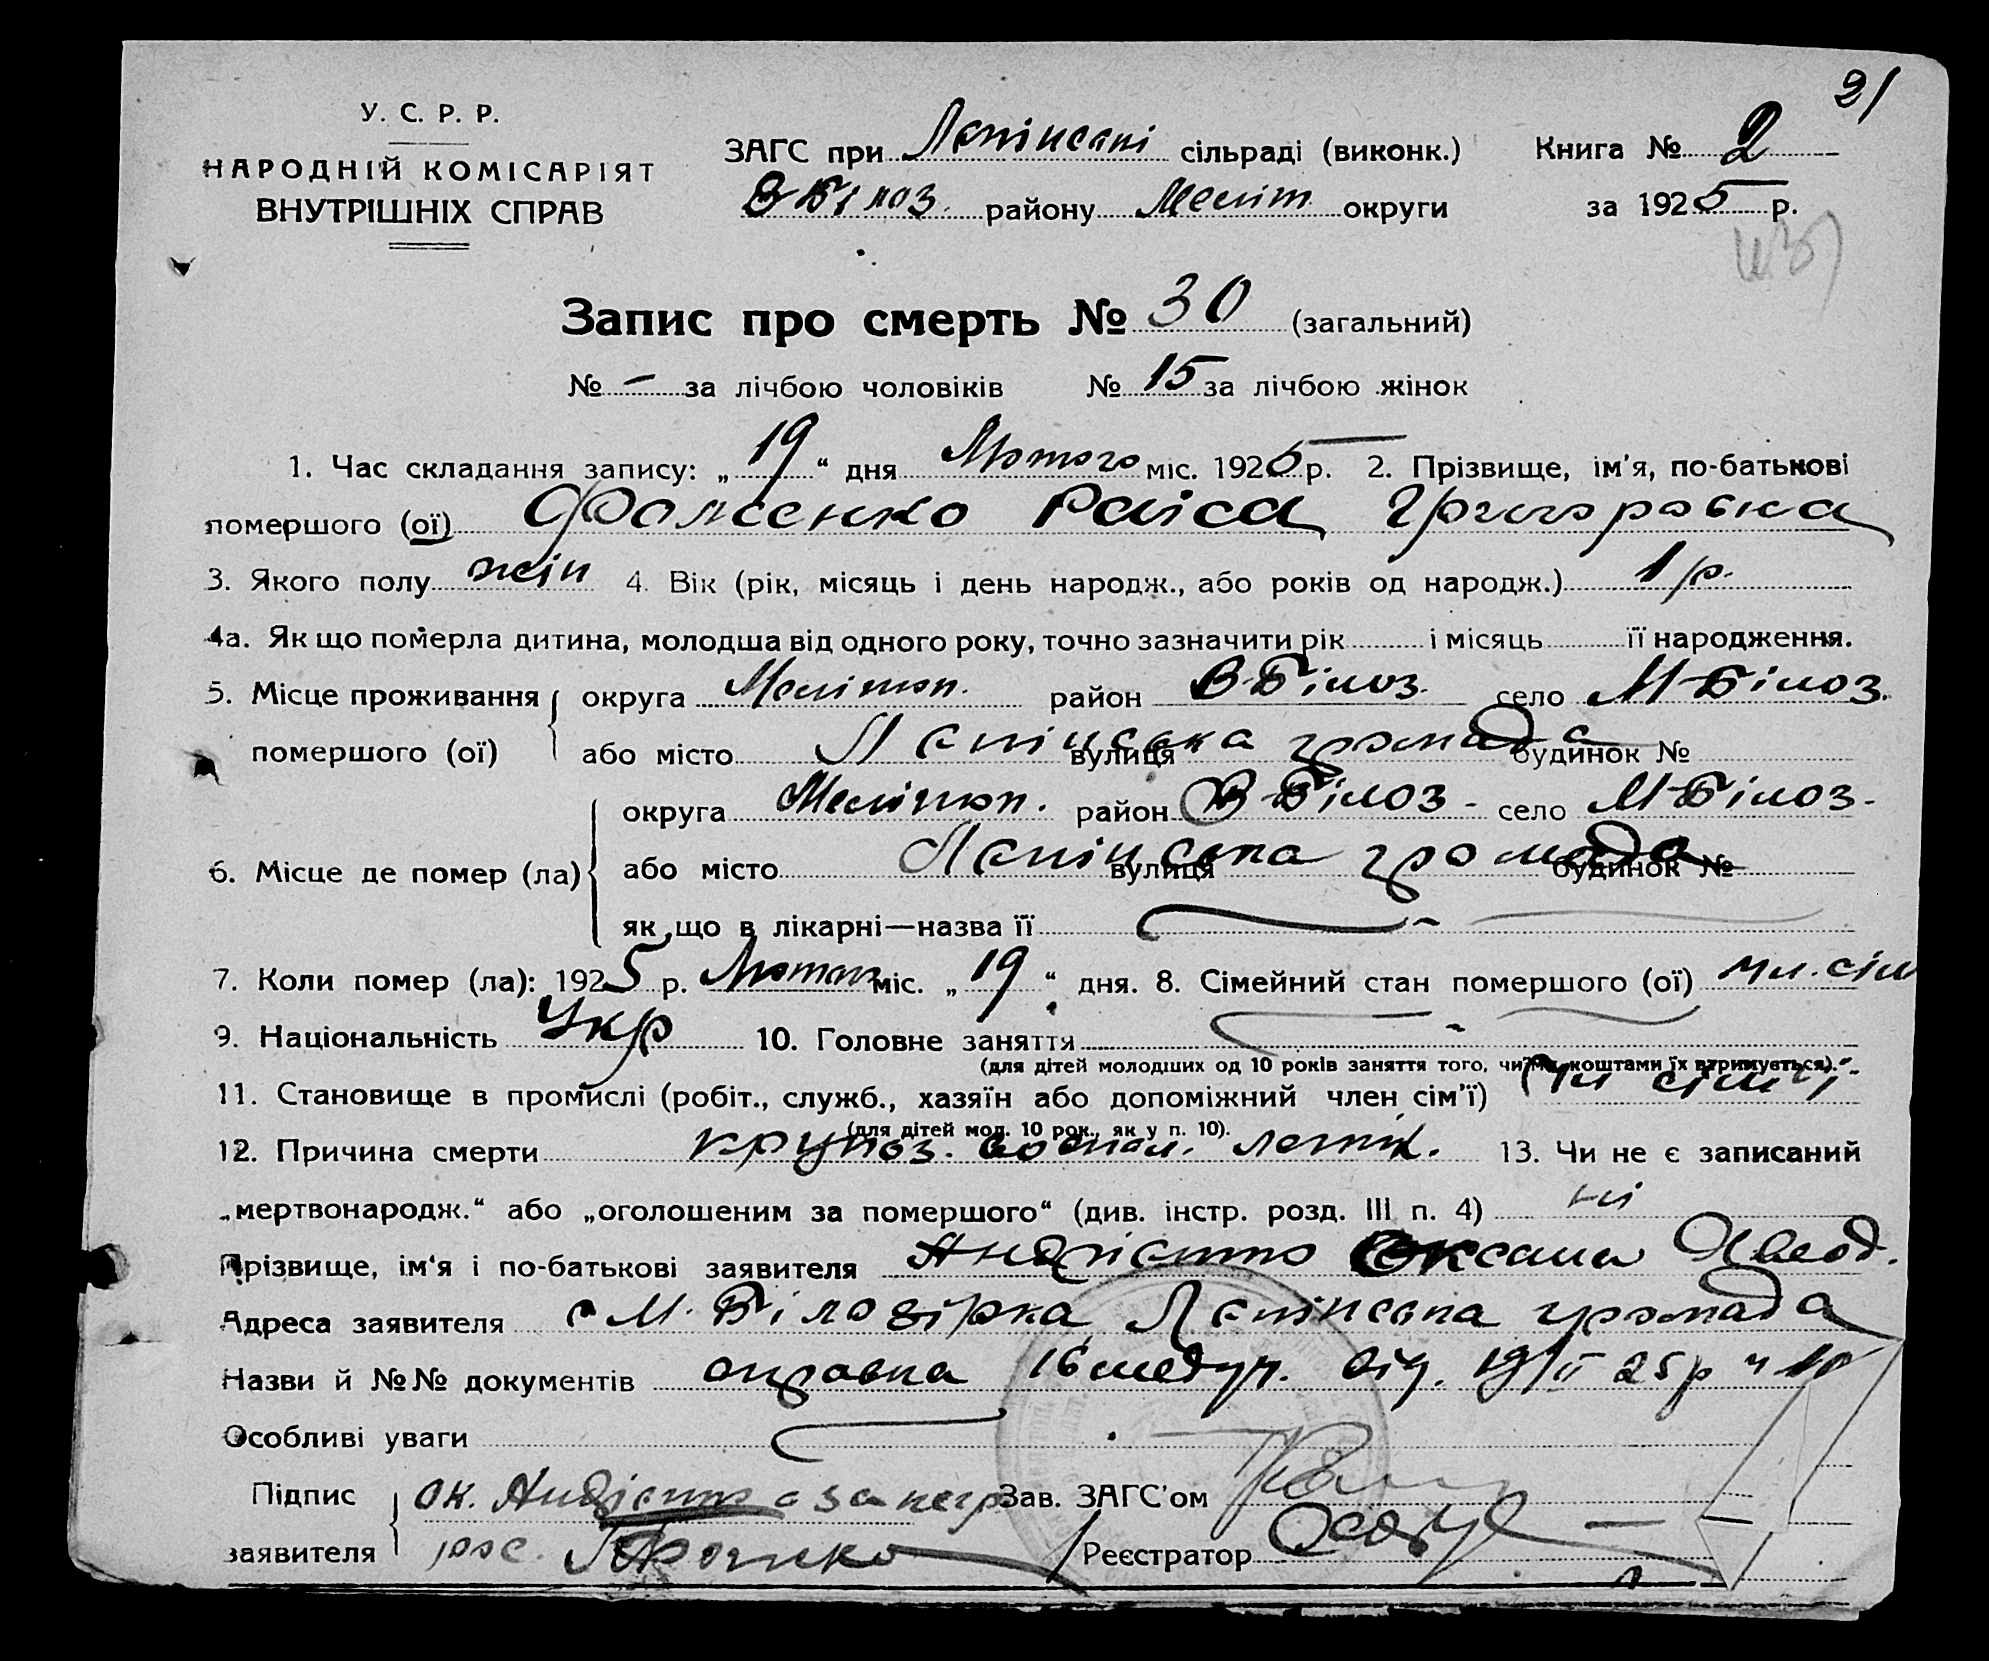 21
У. С. Р. Р.
НАРОДНІЙ КОМІСАРІЯТ
ВНУТРІШНІХ СПРАВ
ЗАГС при Лепінській сільраді (виконк.) Книга № 2
В Білоз. району Меліт. округи за 1925 р.
Запис про смерть № 30 (загальний)
№ — за лічбою чоловіків № 15 за лічбою жінок
1. Час складання запису: „ 19 “ дня Лютого міс. 1925 р. 2. Прізвище, ім'я, по-батькові
помершого (ої) Фоменко Раіса Григоровна
3. Якого полу жін 4. Вік (рік, місяць і день народж., або років од народж.) 1 р.
4а. Як що померла дитина, молодша від одного року, точно зазначити рік і місяць її народження.
5. Місце проживання округа Мелітоп. район В-Білоз. село М-Білоз.
помершого (ої) або місто Лепінська громада вулиця будинок №
округа Мелітоп. район В-Білоз- село М-Білоз-
6. Місце де помер (ла) або місто Лепінська громада вулиця будинок №
як що в лікарні—назва її
7. Коли помер (ла): 1925 р. Лютого міс. „ 19 “ дня. 8. Сімейний стан помершого (ої)
9. Національність Укр 10. Головне заняття
(для дітей молодших од 10 років заняття того, чиїми коштами їх втримується).
11. Становище в промислі (робіт., служб., хазяїн або допоміжний член сім'ї) чл сімі
(для дітей мол. 10 рок., як у п. 10).
12. Причина смерти крупоз. воспал. легкік. 13. Чи не є записаний
„мертвонародж.“ або „оголошеним за помершого“ (див. інстр. розд. III п. 4) ні
Прізвище, ім'я і по-батькові заявителя Оксана
Адреса заявителя с М. Білозірка Лепінська громада
Назви й №№ документів справка 16 медуч. від. 19/II 25 р ч
Особливі уваги
Підпис Ок. Зав. ЗАГС'ом
заявителя рос. Реєстратор